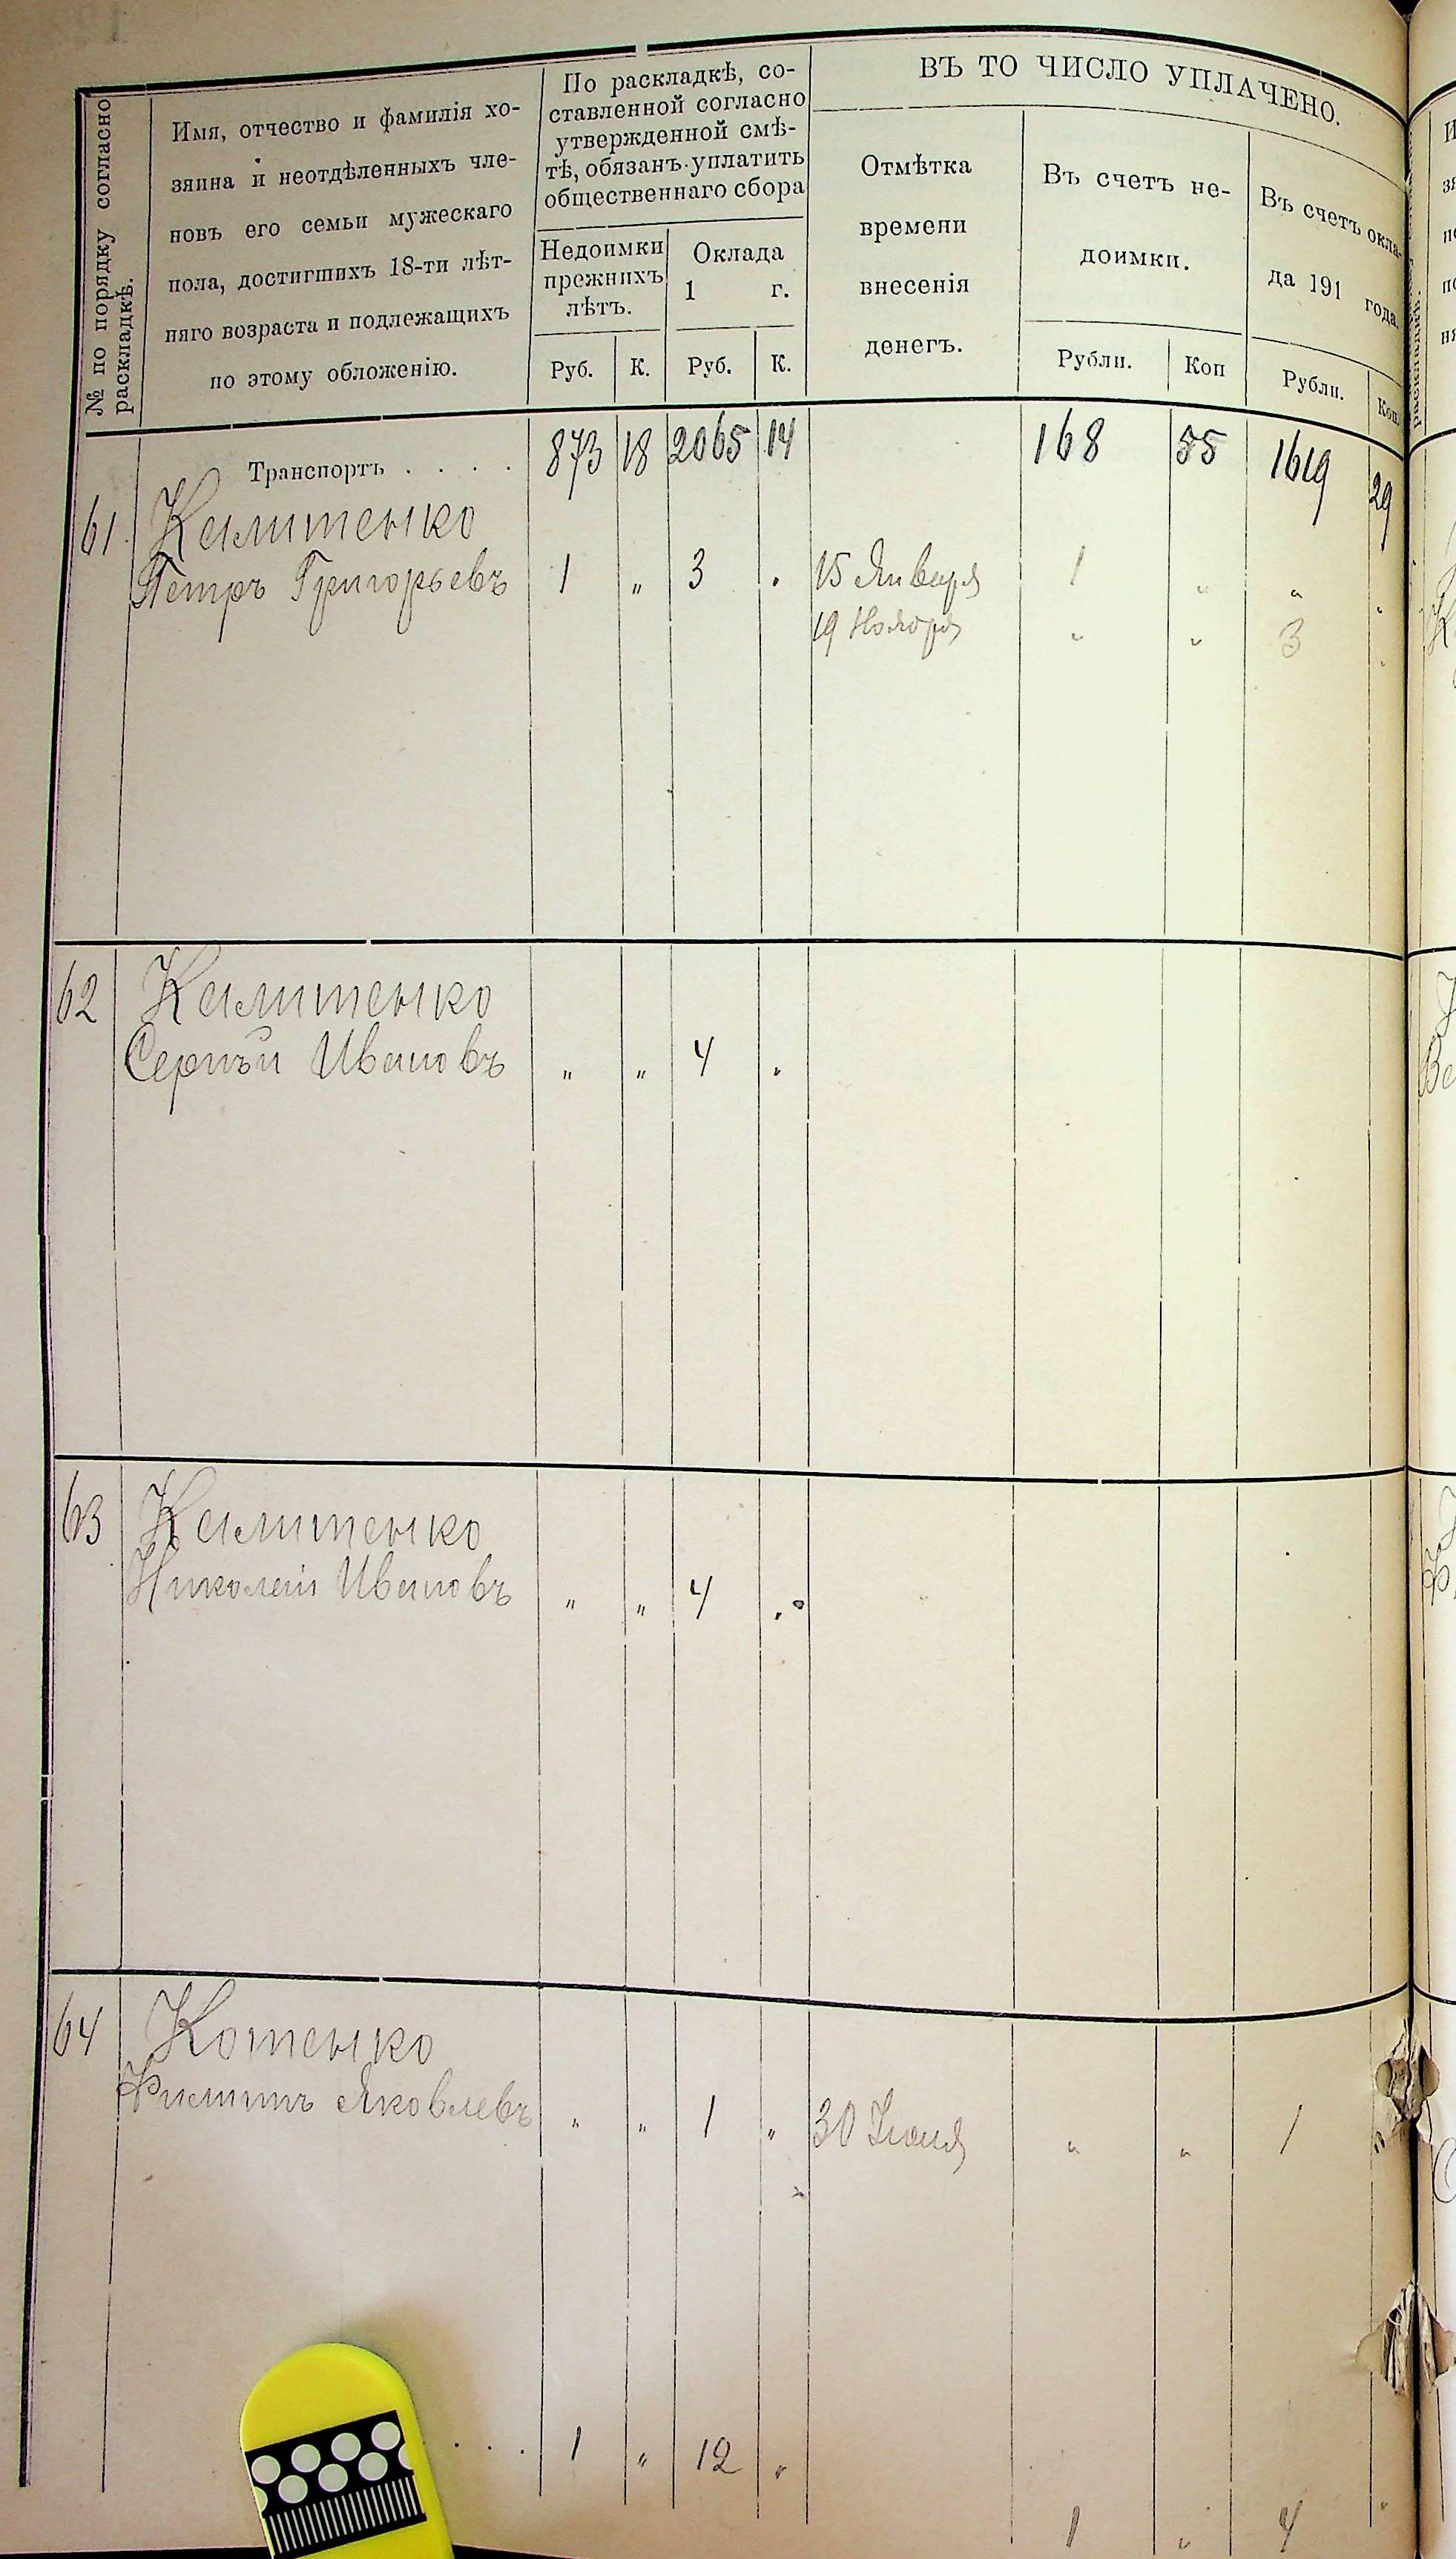 ВЪ ТО ЧИСЛО УПЛАЧЕНО.
№ по порядку согласно
раскладкѣ.
Имя, отчество и фамилія хо-
зяина и неотдѣленныхъ чле-
новъ его семьи мужескаго
пола, достигшихъ 18-ти лѣт-
няго возраста и подлежащихъ
по этому обложенію.
По раскладкѣ, со-
ставленной согласно
утвержденной смѣ-
тѣ, обязанъ уплатить
общественнаго сбора
Недоимки
прежнихъ
лѣтъ.
Оклада
1 г.
Отмѣтка
времени
внесенія
денегъ.
Въ счетъ не-
доимки.
Въ счетъ окла-
да 191 года.
Руб. К. Руб. К. Рубли. Коп Рубли. Коп
Транспортъ . . . . 873 18 2065 14 168 55 1619 29
61 Калитенко
Петръ Григорьевъ 1 „ 3 „ 15 Января 1 „ „ „
19 Ноября „ „ 3 „
62 Калитенко
Сергѣй Ивановъ „ „ 4 „
63 Калитенко
Николай Ивановъ „ „ 4 „
64 Котенко
Филиппъ Яковлевъ „ „ 1 „ 30 Іюня „ „ 1 „
. . . 1 „ 12 „
1 „ 4 „